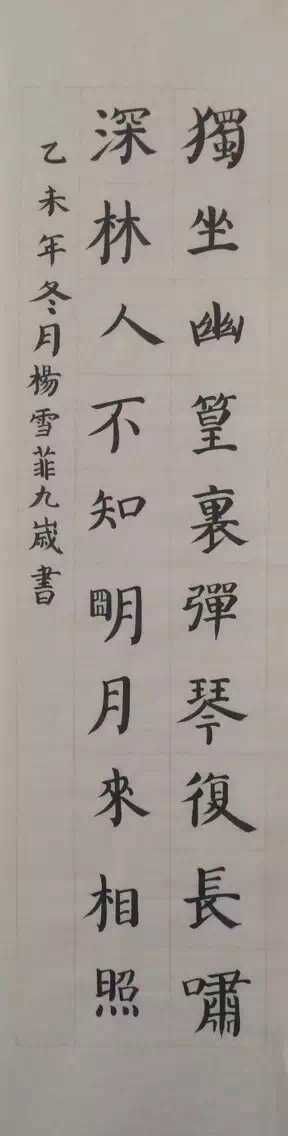 獨坐幽篁裏彈琴復長嘯
深林人不知明月來相照
乙未年冬月楊雪菲九歲書